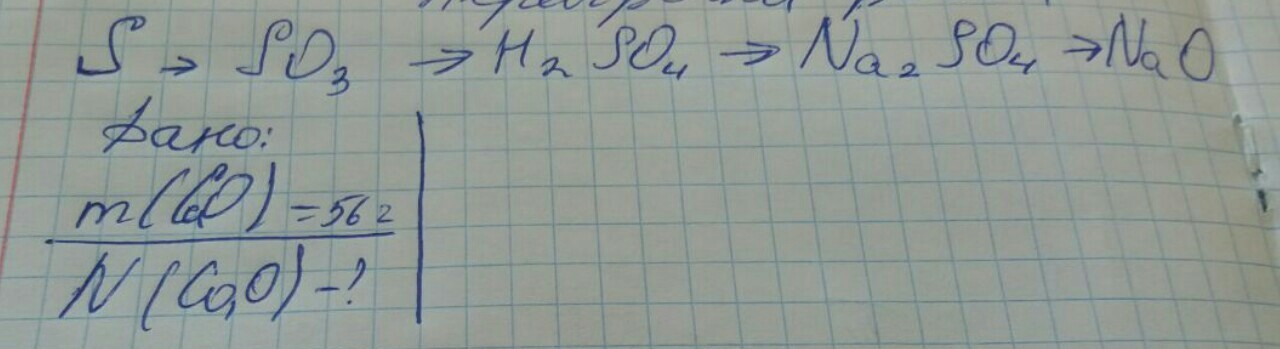 S → SO₃ → H₂SO₄ → Na₂SO₄ → NaO
Дано:
m(CaO) = 56 г
N(CaO) - ?